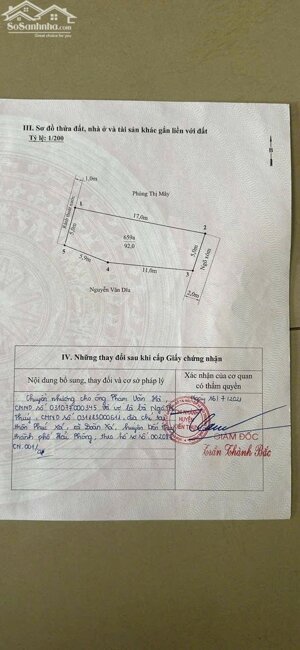 SoSanhnha.com
Great choice for you
III. Sơ đồ thửa đất, nhà ở và tài sản khác gắn liền với đất
Tỷ lệ: 1/200
B
1,0m
Phùng Thị Mây
1
17,0m
2
5,0m
659a
92,0
5,0m
Ngõ xóm
5
3,9m
4
11,0m
3
Nguyễn Văn Dĩa
2,0m
IV. Những thay đổi sau khi cấp Giấy chứng nhận
Nội dung bổ sung, thay đổi và cơ sở pháp lý
Xác nhận của cơ quan
có thẩm quyền
Chuyển nhượng cho ông Phạm Văn Hà,
CMND số 031077000345 và vợ là bà Ngô
Thúy, CMND số địa chỉ tại
thôn Phúc Xá, xã Đoàn Xá, huyện Kiến Thụy
thành phố Hải Phòng, theo hồ sơ số
CN.001
Ngày 16/7/2021
GIÁM ĐỐC
Trần Thành Bắc